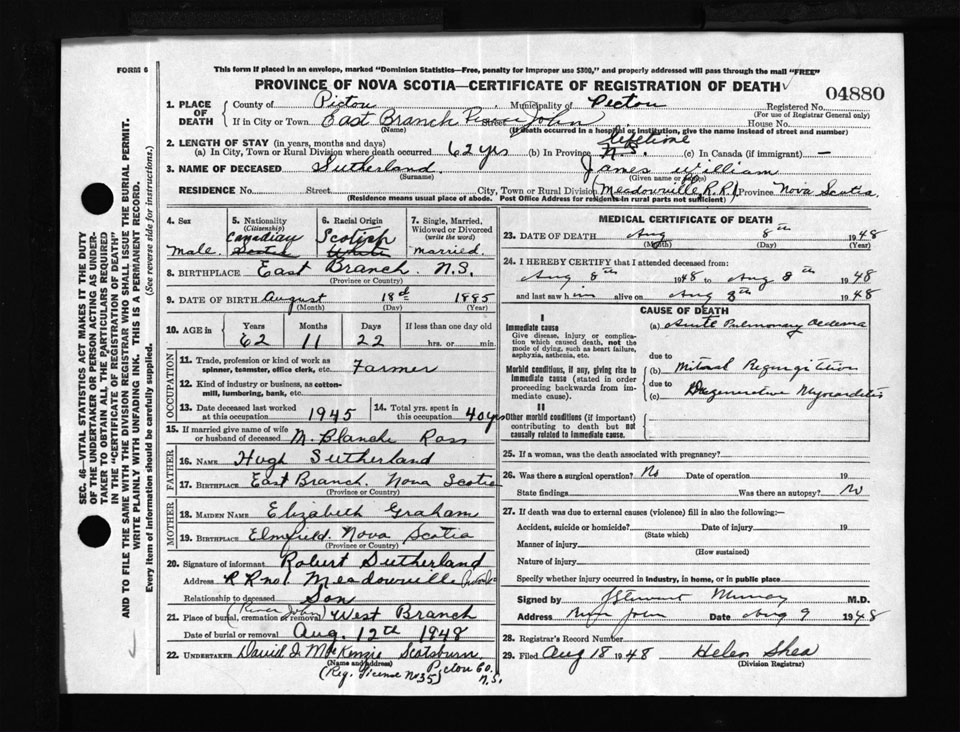 FORM 6
This form if placed in an envelope, marked "Dominion Statistics—Free, penalty for improper use $300," and properly addressed will pass through the mail "FREE"
PROVINCE OF NOVA SCOTIA—CERTIFICATE OF REGISTRATION OF DEATH
04880
1. PLACE OF DEATH County of Pictou Municipality of Pictou Registered No.
(For use of Registrar General only)
If in City or Town East Branch River John House No.
(Name) (If death occurred in a hospital or institution, give the name instead of street and number)
2. LENGTH OF STAY (in years, months and days) lifetime
(a) In City, Town or Rural Division where death occurred 62 yrs (b) In Province N.S. (c) In Canada (if immigrant) —
3. NAME OF DECEASED Sutherland James William
(Surname) (Given name or names)
RESIDENCE No. Street City, Town or Rural Division (Meadowville R.R.) Province Nova Scotia
(Residence means usual place of abode. Post Office Address for residents in rural parts not sufficient)
4. Sex Male
5. Nationality (Citizenship) Canadian
6. Racial Origin Scotish White
7. Single, Married, Widowed or Divorced (write the word) married.
8. BIRTHPLACE East Branch. N.S.
(Province or Country)
9. DATE OF BIRTH August 18d 1885
(Month) (Day) (Year)
10. AGE in Years Months Days If less than one day old
62 11 22 hrs. or min.
OCCUPATION
11. Trade, profession or kind of work as spinner, teamster, office clerk, etc. Farmer
12. Kind of industry or business, as cotton-mill, lumbering, bank, etc.
13. Date deceased last worked at this occupation 1945
14. Total yrs. spent in this occupation 40 yrs
15. If married give name of wife or husband of deceased M. Blanche Ross
FATHER
16. NAME Hugh Sutherland
17. BIRTHPLACE East Branch. Nova Scotia
(Province or Country)
MOTHER
18. MAIDEN NAME Elizabeth Graham
19. BIRTHPLACE Elmfield. Nova Scotia
(Province or Country)
20. Signature of informant Robert Sutherland
Address R R no 1. Meadowville
Relationship to deceased Son
21. Place of burial, cremation or removal (River John) West Branch
Date of burial or removal Aug. 12th 1948
22. UNDERTAKER David I. MacKenzie Scotsburn
(Name and address) Pictou Co. N.S.
(Reg. License No 35)
MEDICAL CERTIFICATE OF DEATH
23. DATE OF DEATH Aug 8th 1948
(Month) (Day)
24. I HEREBY CERTIFY that I attended deceased from:
Aug 8th 1948 to Aug 8th 1948
and last saw him alive on Aug 8th 1948
CAUSE OF DEATH
I
Immediate cause
Give disease, injury or complication which caused death, not the mode of dying, such as heart failure, asphyxia, asthenia, etc.
(a) Acute Pulmonary Oedema
due to
Morbid conditions, if any, giving rise to immediate cause (stated in order proceeding backwards from immediate cause).
(b) Mitral Regurgitation
due to
(c) Degenerative Myocarditis
II
Other morbid conditions (if important) contributing to death but not causally related to immediate cause.
25. If a woman, was the death associated with pregnancy?
26. Was there a surgical operation? No Date of operation 19
State findings Was there an autopsy? No
27. If death was due to external causes (violence) fill in also the following:—
Accident, suicide or homicide? Date of injury 19
(State which)
Manner of injury
(How sustained)
Nature of injury
Specify whether injury occurred in industry, in home, or in public place
Signed by J Stewart Murray M.D.
Address River John Date Aug 9 1948
28. Registrar's Record Number
29. Filed Aug 18 1948 Helen Shea
(Division Registrar)
SEC. 46—VITAL STATISTICS ACT MAKES IT THE DUTY
OF THE UNDERTAKER OR PERSON ACTING AS UNDER-
TAKER TO OBTAIN ALL THE PARTICULARS REQUIRED
IN THE "CERTIFICATE OF REGISTRATION OF DEATH"
AND TO FILE THE SAME WITH THE DIVISION REGISTRAR WHO SHALL ISSUE THE BURIAL PERMIT.
WRITE PLAINLY WITH UNFADING INK. THIS IS A PERMANENT RECORD.
Every item of information should be carefully supplied. (See reverse side for instructions.)